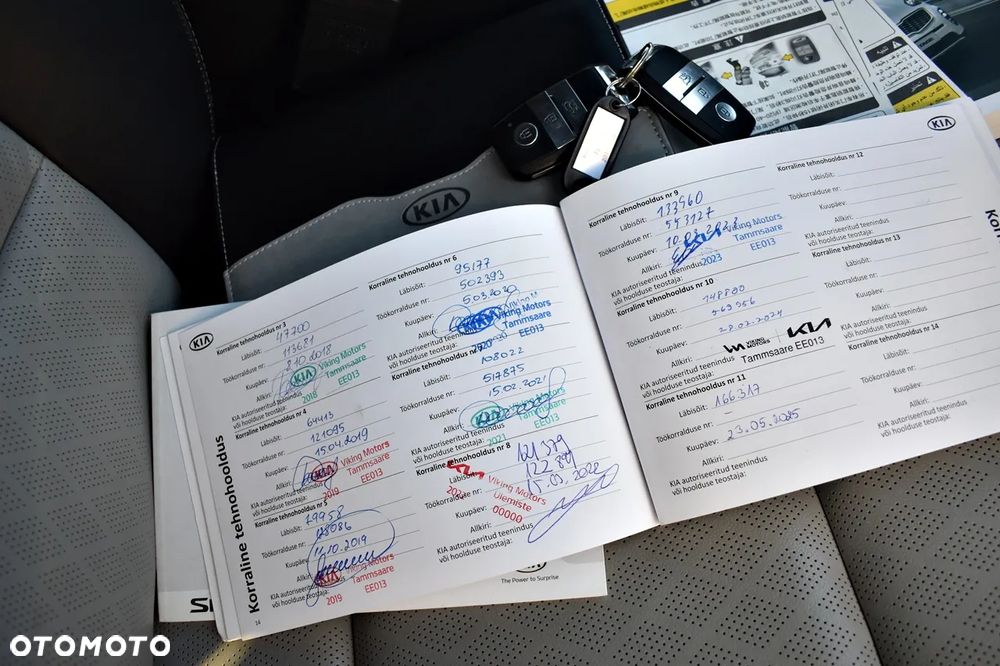 KIA
KIA
Korraline tehnohooldus
Korraline tehnohooldus nr 3
Läbisõit: 47200
Töökorralduse nr: 113681
Kuupäev: 8.10.2018
Allkiri:
KIA Viking Motors
Tammsaare
2018 EE013
KIA autoriseeritud teenindus
või hoolduse teostaja:
Korraline tehnohooldus nr 4
Läbisõit: 64413
Töökorralduse nr: 121095
Kuupäev: 15.04.2019
Allkiri:
KIA Viking Motors
Tammsaare
2019 EE013
KIA autoriseeritud teenindus
või hoolduse teostaja:
Korraline tehnohooldus nr 5
Läbisõit: 79958
Töökorralduse nr: 128086
Kuupäev: 14.10.2019
Allkiri:
KIA Viking Motors
Tammsaare
2019 EE013
KIA autoriseeritud teenindus
või hoolduse teostaja:
14
Korraline tehnohooldus nr 6
Läbisõit: 95177
Töökorralduse nr: 502393
Kuupäev: 5.03.2020
Allkiri:
Viking M
Viking Motors
Tammsaare
2020 EE013
KIA autoriseeritud teenindus
või hoolduse teostaja:
Korraline tehnohooldus nr 7
Läbisõit: 108022
Töökorralduse nr: 517875
Kuupäev: 15.02.2021
Allkiri:
Viking Motors
Tammsaare
2021 EE013
KIA autoriseeritud teenindus
või hoolduse teostaja:
Korraline tehnohooldus nr 8
Läbisõit: 121579
Töökorralduse nr:
Kuupäev: 15.03.2022
Allkiri:
KIA Viking Motors
Ülemiste
00000
KIA autoriseeritud teenindus
või hoolduse teostaja:
The Power to Surprise
KIA
Korraline tehnohooldus nr 9
Läbisõit: 133960
Töökorralduse nr: 543127
Kuupäev: 10.03.2023
Allkiri:
KIA Viking Motors
Tammsaare
2023 EE013
KIA autoriseeritud teenindus
või hoolduse teostaja:
Korraline tehnohooldus nr 10
Läbisõit: 148890
Töökorralduse nr: 569956
Kuupäev: 28.02.2024
Allkiri:
VIKING MOTORS KIA
Tammsaare EE013
KIA autoriseeritud teenindus
või hoolduse teostaja:
Korraline tehnohooldus nr 11
Läbisõit: 166317
Töökorralduse nr:
Kuupäev: 23.05.2025
Allkiri:
KIA autoriseeritud teenindus
või hoolduse teostaja:
Korraline tehnohooldus nr 12
Läbisõit:
Töökorralduse nr:
Kuupäev:
Allkiri:
KIA autoriseeritud teenindus
või hoolduse teostaja:
Korraline tehnohooldus nr 13
Läbisõit:
Töökorralduse nr:
Kuupäev:
Allkiri:
KIA autoriseeritud teenindus
või hoolduse teostaja:
Korraline tehnohooldus nr 14
Läbisõit:
Töökorralduse nr:
Kuupäev:
Allkiri:
KIA autoriseeritud teenindus
või hoolduse teostaja:
KIA
OTOMOTO